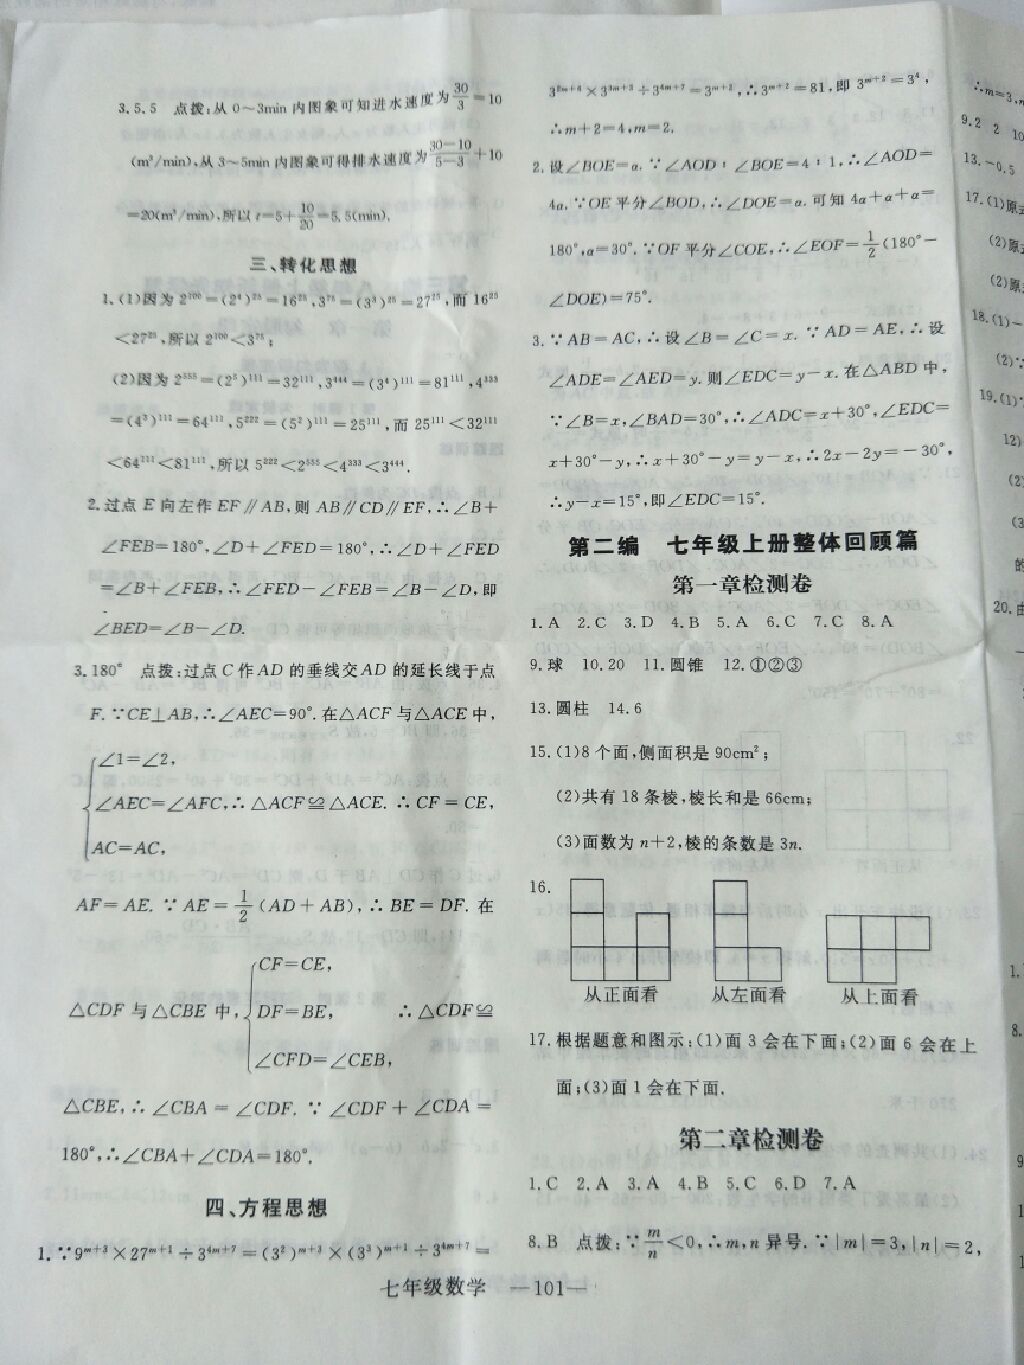 3. 5. 5 点拨:从 0～3min 内图象可知进水速度为30/3=10
(m³/min),从 3～5min 内图象可得排水速度为(30-10)/(5-3)+10
=20(m³/min),所以 t=5+10/20=5.5(min).
三、转化思想
1. (1)因为 2¹⁰⁰=(2⁴)²⁵=16²⁵,3⁷⁵=(3³)²⁵=27²⁵,而 16²⁵
<27²⁵,所以 2¹⁰⁰<3⁷⁵;
(2)因为 2⁵⁵⁵=(2⁵)¹¹¹=32¹¹¹,3⁴⁴⁴=(3⁴)¹¹¹=81¹¹¹,4³³³
=(4³)¹¹¹=64¹¹¹,5²²²=(5²)¹¹¹=25¹¹¹,而 25¹¹¹<32¹¹¹
<64¹¹¹<81¹¹¹,所以 5²²²<2⁵⁵⁵<4³³³<3⁴⁴⁴.
2. 过点 E 向左作 EF∥AB,则 AB∥CD∥EF,∴∠B+
∠FEB=180°,∠D+∠FED=180°,∴∠D+∠FED
=∠B+∠FEB,∴∠FED-∠FEB=∠B-∠D,即
∠BED=∠B-∠D.
3. 180° 点拨:过点 C 作 AD 的垂线交 AD 的延长线于点
F.∵CE⊥AB,∴∠AEC=90°.在△ACF 与△ACE 中,
∠1=∠2,
∠AEC=∠AFC,∴△ACF≌△ACE.∴CF=CE,
AC=AC,
AF=AE.∵AE=1/2(AD+AB),∴BE=DF.在
CF=CE,
△CDF 与△CBE 中,DF=BE, ∴△CDF≌
∠CFD=∠CEB,
△CBE,∴∠CBA=∠CDF.∵∠CDF+∠CDA=
180°,∴∠CBA+∠CDA=180°.
四、方程思想
1. ∵9ᵐ⁺³×27ᵐ⁺¹÷3⁴ᵐ⁺⁷=(3²)ᵐ⁺³×(3³)ᵐ⁺¹÷3⁴ᵐ⁺⁷=
3²ᵐ⁺⁶×3³ᵐ⁺³÷3⁴ᵐ⁺⁷=3ᵐ⁺²,∴3ᵐ⁺²=81,即 3ᵐ⁺²=3⁴,
∴m+2=4,m=2.
2. 设∠BOE=α.∵∠AOD∶∠BOE=4∶1,∴∠AOD=
4α.∵OE 平分∠BOD,∴∠DOE=α.可知 4α+α+α=
180°,α=30°.∵OF 平分∠COE,∴∠EOF=1/2(180°-
∠DOE)=75°.
3. ∵AB=AC,∴设∠B=∠C=x.∵AD=AE,∴设
∠ADE=∠AED=y.则∠EDC=y-x.在△ABD 中,
∵∠B=x,∠BAD=30°,∴∠ADC=x+30°,∠EDC=
x+30°-y,∴x+30°-y=y-x,∴2x-2y=-30°,
∴y-x=15°,即∠EDC=15°.
第二编 七年级上册整体回顾篇
第一章检测卷
1. A 2. C 3. D 4. B 5. A 6. C 7. C 8. A
9. 球 10. 20 11. 圆锥 12. ①②③
13. 圆柱 14. 6
15. (1)8 个面,侧面积是 90cm²;
(2)共有 18 条棱,棱长和是 66cm;
(3)面数为 n+2,棱的条数是 3n.
16.
从正面看 从左面看 从上面看
17. 根据题意和图示:(1)面 3 会在下面;(2)面 6 会在上
面;(3)面 1 会在下面.
第二章检测卷
1. C 2. A 3. A 4. B 5. C 6. D 7. A
8. B 点拨:∵m/n<0,∴m,n 异号.∵|m|=3,|n|=2,
七年级数学 —101—
∴m=3,
9. 2 2 10
13. -0.5
17. (1)原式
(2)原式
(2)原
18. (1)-
(2)∵
19. (1)∵
12)
(2)
(3
的
20. 由